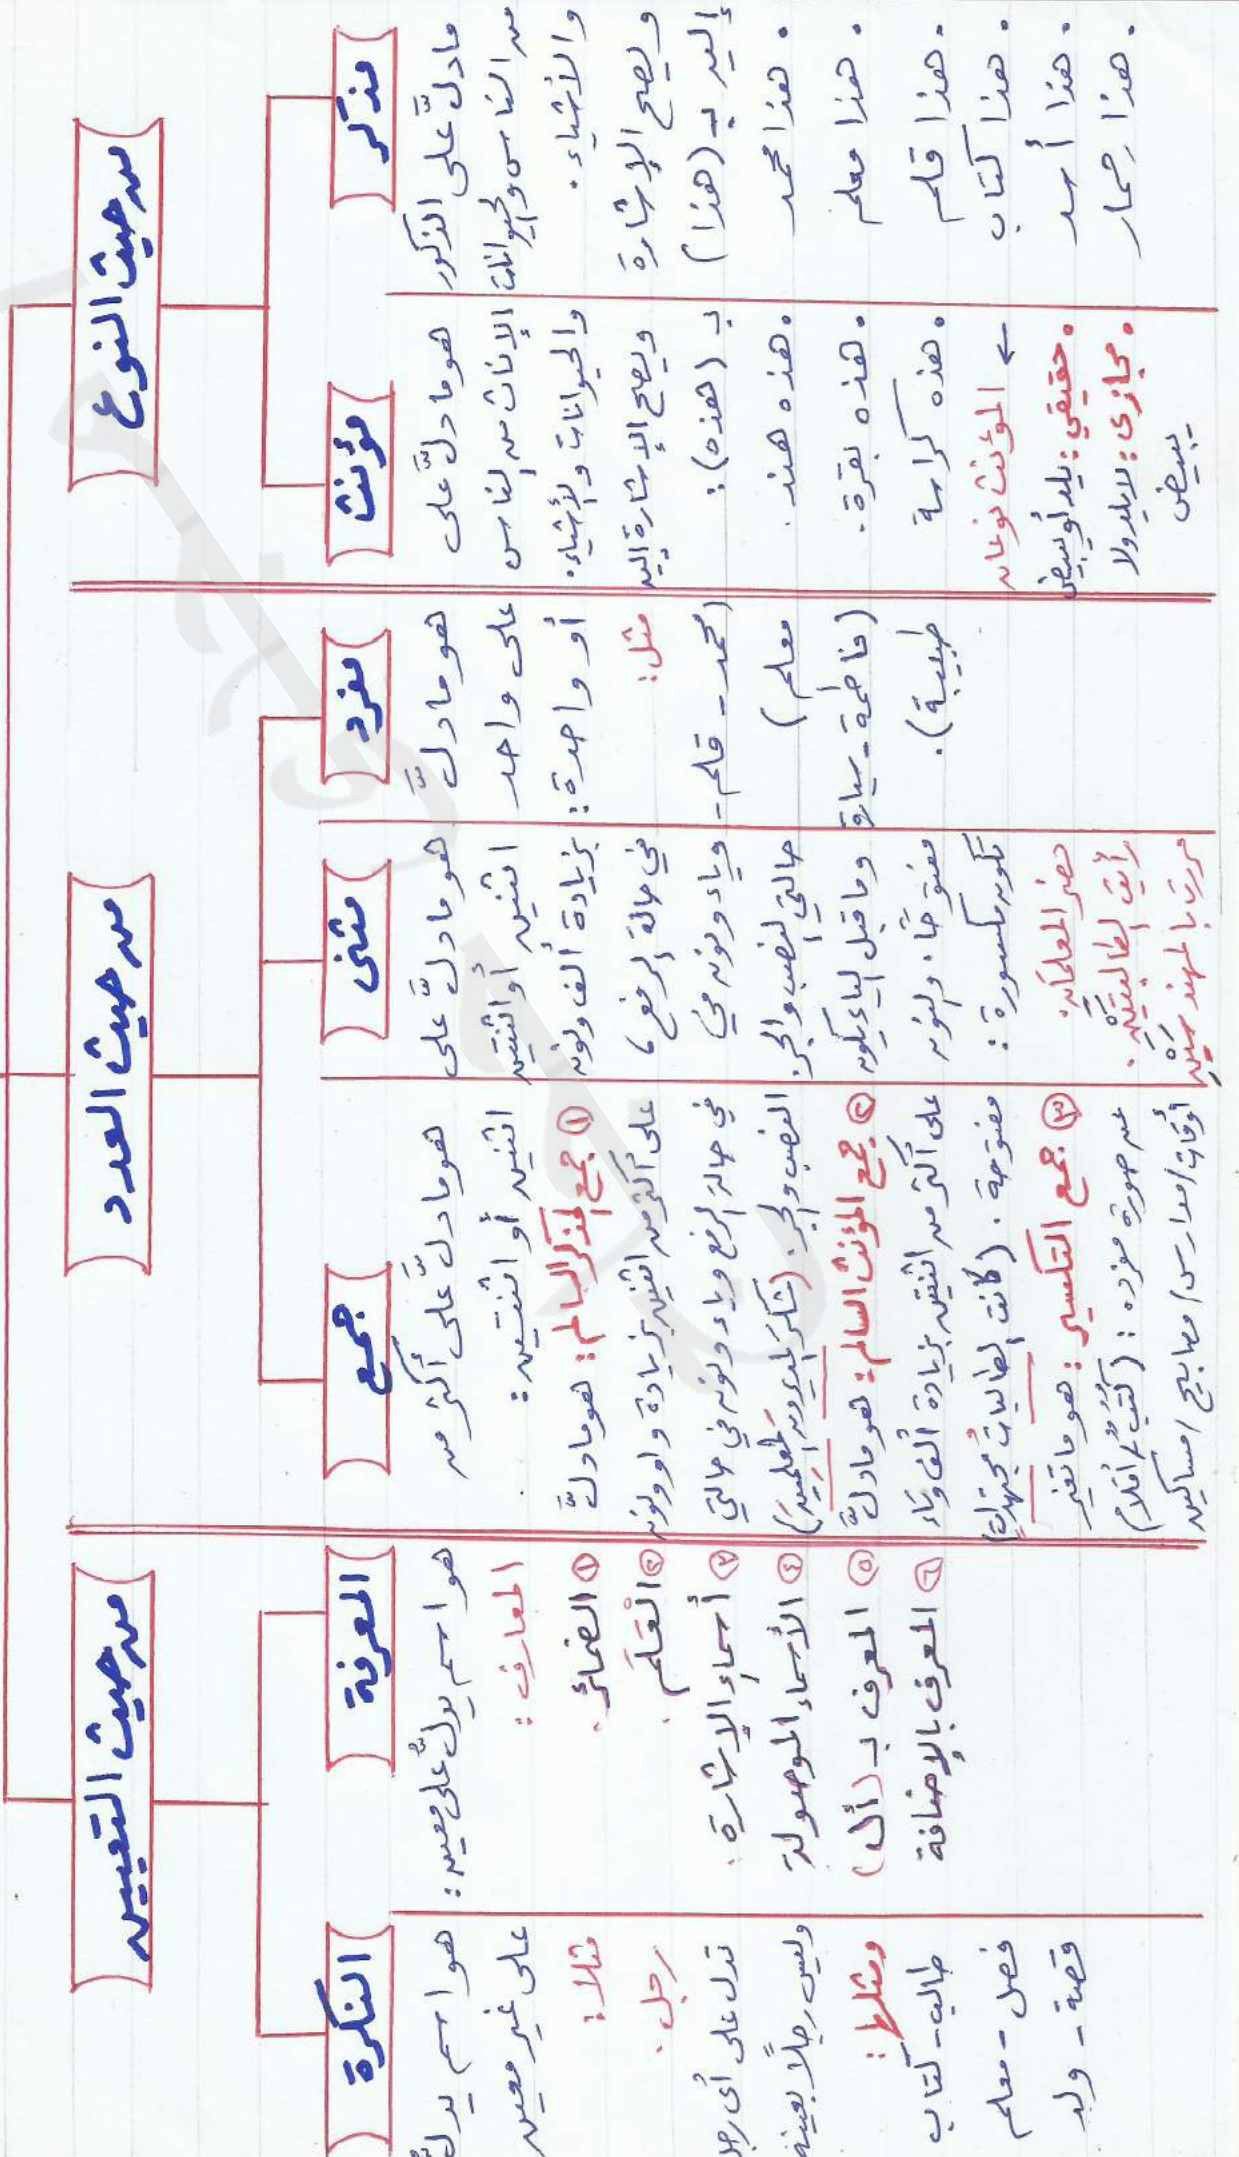 من حيث النوع
مذكر
ما دلّ على الذكور
من الناس والحيوانات
والأشياء.
ويصح الإشارة
إليه بـ (هذا)
• هذا محمد
• هذا معلم
• هذا قلم
• هذا كتاب
• هذا أسد
• هذا حمار
مؤنث
هو ما دلّ على
الإناث من الناس
والحيوانات والأشياء.
ويصح الإشارة إليه
بـ (هذه):
• هذه هند.
• هذه بقرة.
• هذه كراسة
المؤنث نوعان
• حقيقي: يلد أو يبيض
• مجازي: لا يلد ولا
يبيض
من حيث العدد
مفرد
هو ما دلّ
على واحد
أو واحدة:
مثل:
(محمد - قلم -
معلم)
(فاطمة - سيارة
طبيبة).
مثنى
هو ما دلّ على
اثنين أو اثنتين
بزيادة ألف ونون
في حالة الرفع،
وياء ونون في
حالتي النصب والجر:
وما قبل الياء يكون
مفتوحًا. والنون
تكون مكسورة:
حضر المعلمان.
رأيت الطالبتَيْنِ.
مررت بالمهندسَيْنِ
جمع
هو ما دلّ على أكثر من
اثنين أو اثنتين:
① جمع المذكر السالم: هو ما دلّ
على أكثر من اثنين بزيادة واو ونون
في حالة الرفع وياء ونون في حالتي
النصب والجر: (شكر المديرون المعلمين)
② جمع المؤنث السالم: هو ما دلّ
على أكثر من اثنتين بزيادة ألف وتاء
مفتوحة. (كانت الطالبات مجتهدات)
③ جمع التكسير: هو ما تغير
عن صورة مفرده: (كتب / أقلام
أوقات / مدارس / مصابيح / مساكين
من حيث التعيين
المعرفة
هو اسم يدلّ على معين:
المعارف:
① الضمائر.
② العَلَم.
③ أسماء الإشارة.
④ الأسماء الموصولة
⑤ المعرف بـ (أل)
⑥ المعرف بالإضافة
النكرة
هو اسم يدلّ
على غير معين
مثلا:
رجل.
تدل على أى رجل
وليس رجلًا بعينه
ومثلها:
طالب - كتاب
فصل - معلم
قصة - ولد